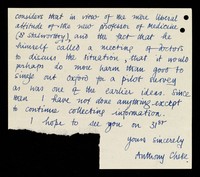 considers that in view of the more liberal
attitude of the new professor of medicine
and the fact that he
himself called a meeting of doctors
to discuss the situation, that it would
perhaps do more harm than good to
single out Oxford for a pilot survey
as was one of the earlier ideas. Since
then I have not done anything except
to continue collecting information.
I hope to see you on 31st
Yours sincerely
Anthony